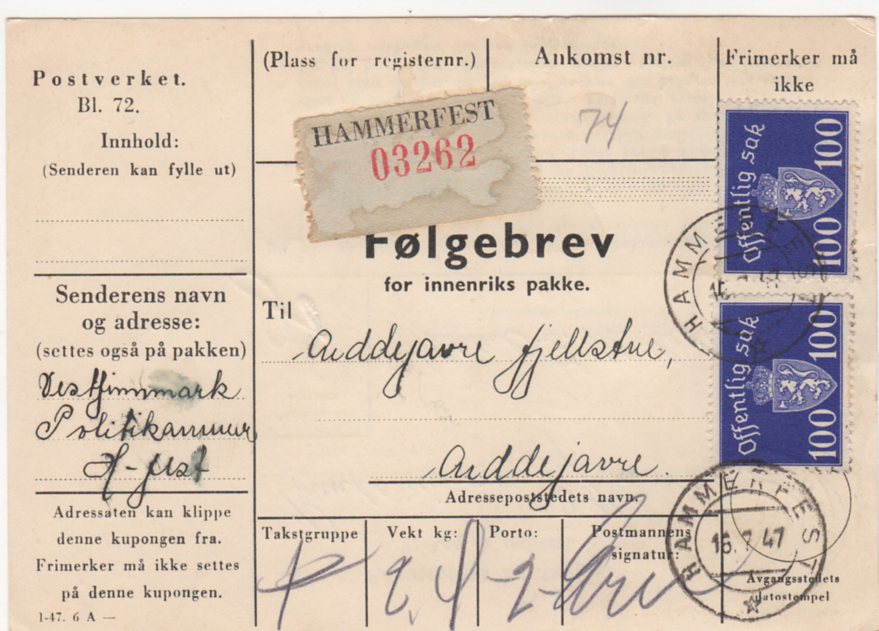 Postverket.
Bl. 72.
Innhold:
(Senderen kan fylle ut)
Senderens navn
og adresse:
(settes også på pakken)
Vestfinnmark
Politikammer
H-fest
Adressaten kan klippe
denne kupongen fra.
Frimerker må ikke settes
på denne kupongen.
1-47. 6 A —
(Plass for registernr.)
Ankomst nr.
74
Frimerker må
ikke
HAMMERFEST
03262
Følgebrev
for innenriks pakke.
Til
Aiddejavre fjellstue,
Aiddejavre.
Adressepoststedets navn.
Takstgruppe
Vekt kg:
Porto:
Postmannens
signatur:
Avgangsstedets
datostempel
Offentlig sak
100 100
HAMMERFEST
Offentlig sak
100 100
HAMMERFEST
16.7.47